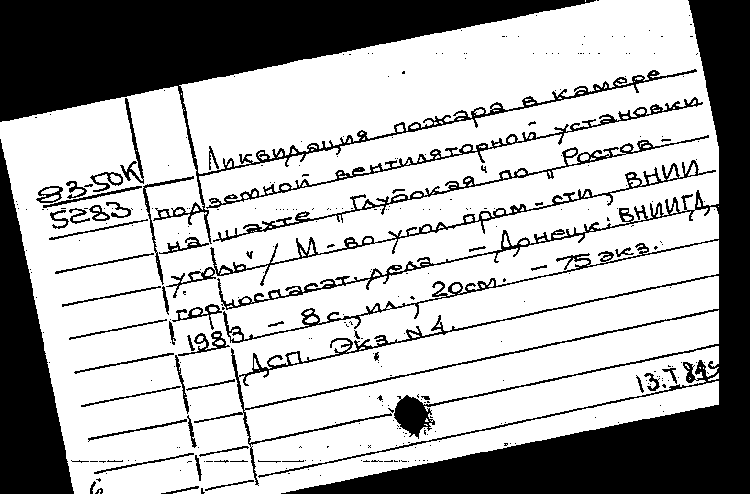 93-50К
5283
Ликвидация пожара в камере
подземной вентиляторной установки
на шахте "Глубокая" по "Ростов-
уголь" / М-во угол. пром-сти, ВНИИ
горноспасат. дела. - Донецк: ВНИИГД,
1983. - 8 с., ил.; 20см. - 75 экз.
ДСП. Экз. N 4.
13.I 84г
6